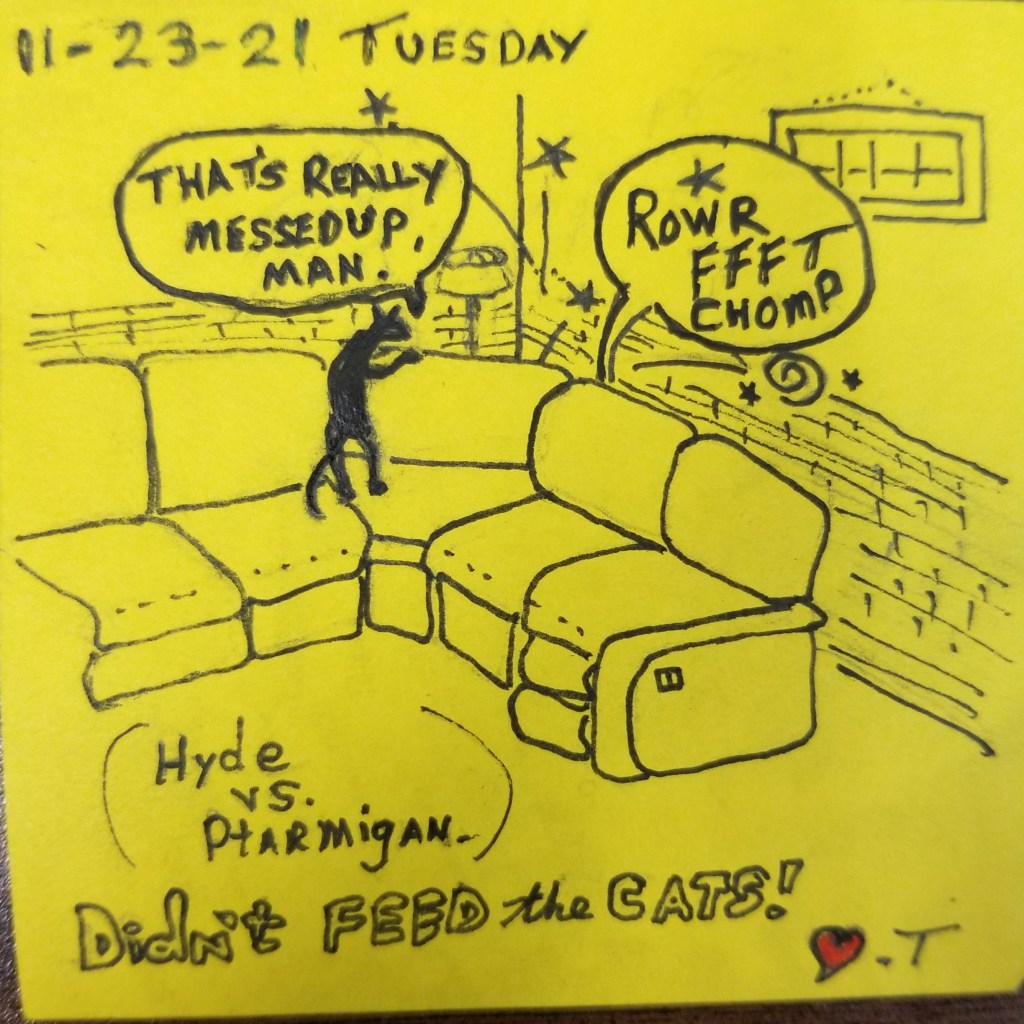 11-23-21 TUESDAY
THAT'S REALLY
MESSEDUP,
MAN.
ROWR
FFFT
CHOMP
(Hyde
vs.
PtARMigAN.)
Didn't FEED the CATS!
.T